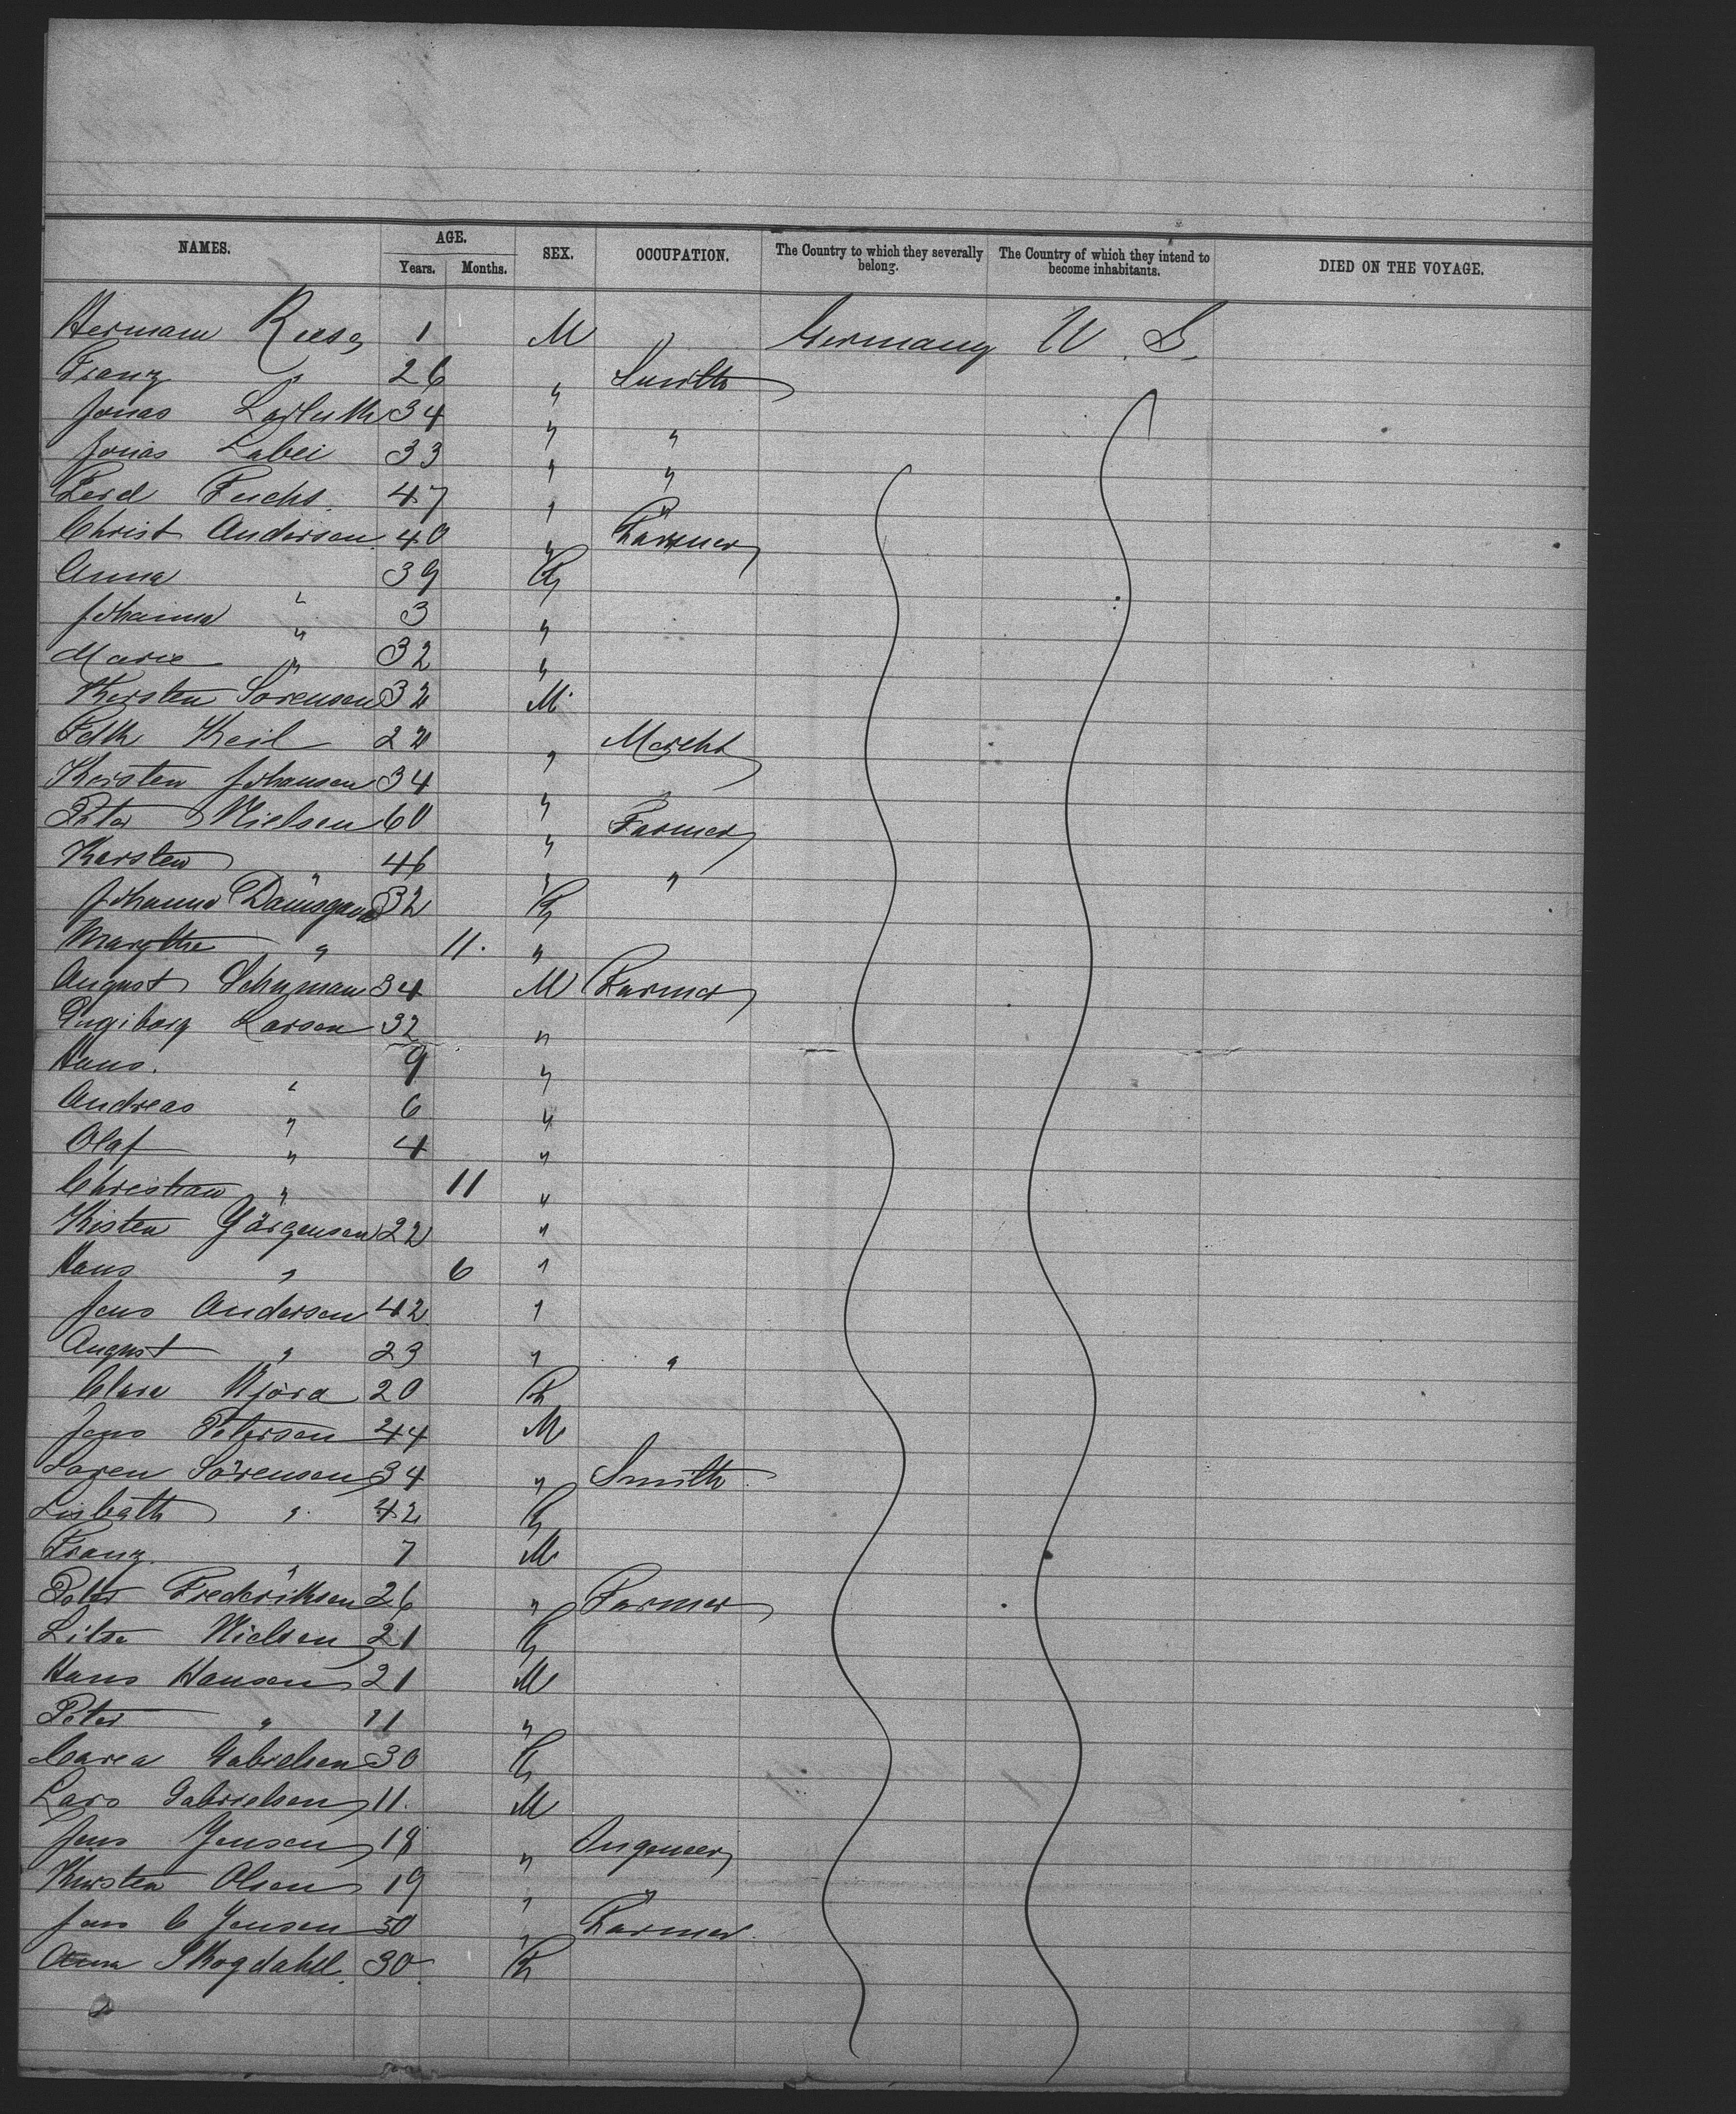 NAMES. AGE. SEX. OCCUPATION. The Country to which they severally belong. The Country of which they intend to become inhabitants. DIED ON THE VOYAGE.
Years. Months.
Hermann 1 M " Germany U. S.
Franz " 26 " Smith
Jonas 34 " "
Jonas Labei 33 " "
Ferd Fuchs. 47 " "
Christ Andersen 40 " Farmer
Anna " 39 F
Johanna " 3 "
Marie " 32 "
Kersten Sörensen 32 M
Keil 22 " Mercht
Kersten Johansen 34 " "
Peter Nielsen 60 " Farmer
Kersten " 46 " "
Johanna 32 F
Margthe " 11. "
August Schuman 34 M Farmer
Ingiborg Larsen 32 "
Hans. " 9 "
Andreas " 6 "
Olaf " 4 "
Christian " 11 "
Kisten Jörgensen 22 "
Hans " 6 "
Jens Andersen 42 "
August " 23 " "
Clara 20 F
Jens Petersen 44 M
Soren Sörensen 34 " Smith
Lisbeth " 42 F
Franz. " 7 M
Peter Frederiksen 26 " Farmer
Nielsen 21 F
Hans Hansen 21 M
Peter " 11 "
Carea Gabrielsen 30 F
Lars Gabrielsen 11. M
Jens Jensen 18 " Ingeneer
Kersten Olsen 19 " "
Jens C Jensen 30 " Farmer.
Anna Skogdahl. 30 F